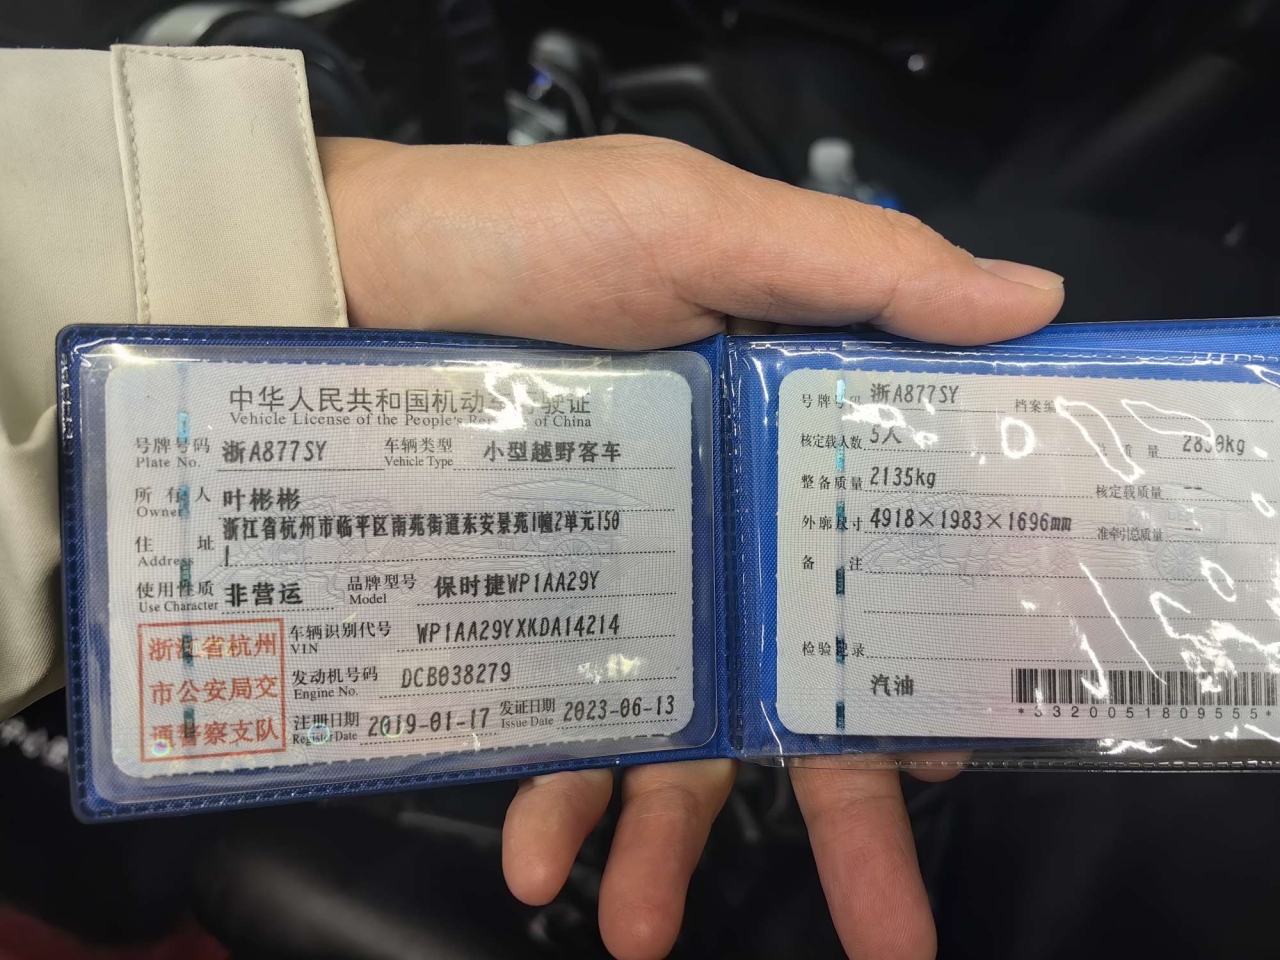 中华人民共和国机动车行驶证
Vehicle License of the People's Republic of China
号牌号码 浙A877SY 车辆类型 小型越野客车
Plate No. Vehicle Type
所有人 叶彬彬
Owner
住址 浙江省杭州市临平区南苑街道东安景苑1幢2单元150
Address 1
使用性质 非营运 品牌型号 保时捷WP1AA29Y
Use Character Model
浙江省杭州
市公安局交
通警察支队
车辆识别代号 WP1AA29YXKDA14214
VIN
发动机号码 DCB038279
Engine No.
注册日期 2019-01-17 发证日期 2023-06-13
Register Date Issue Date
号牌号码 浙A877SY 档案编
核定载人数 5人 总质量
整备质量 2135kg 核定载质量 --
外廓尺寸 4918×1983×1696mm 准牵引总质量 --
备注
检验记录
汽油
*3320051809555*